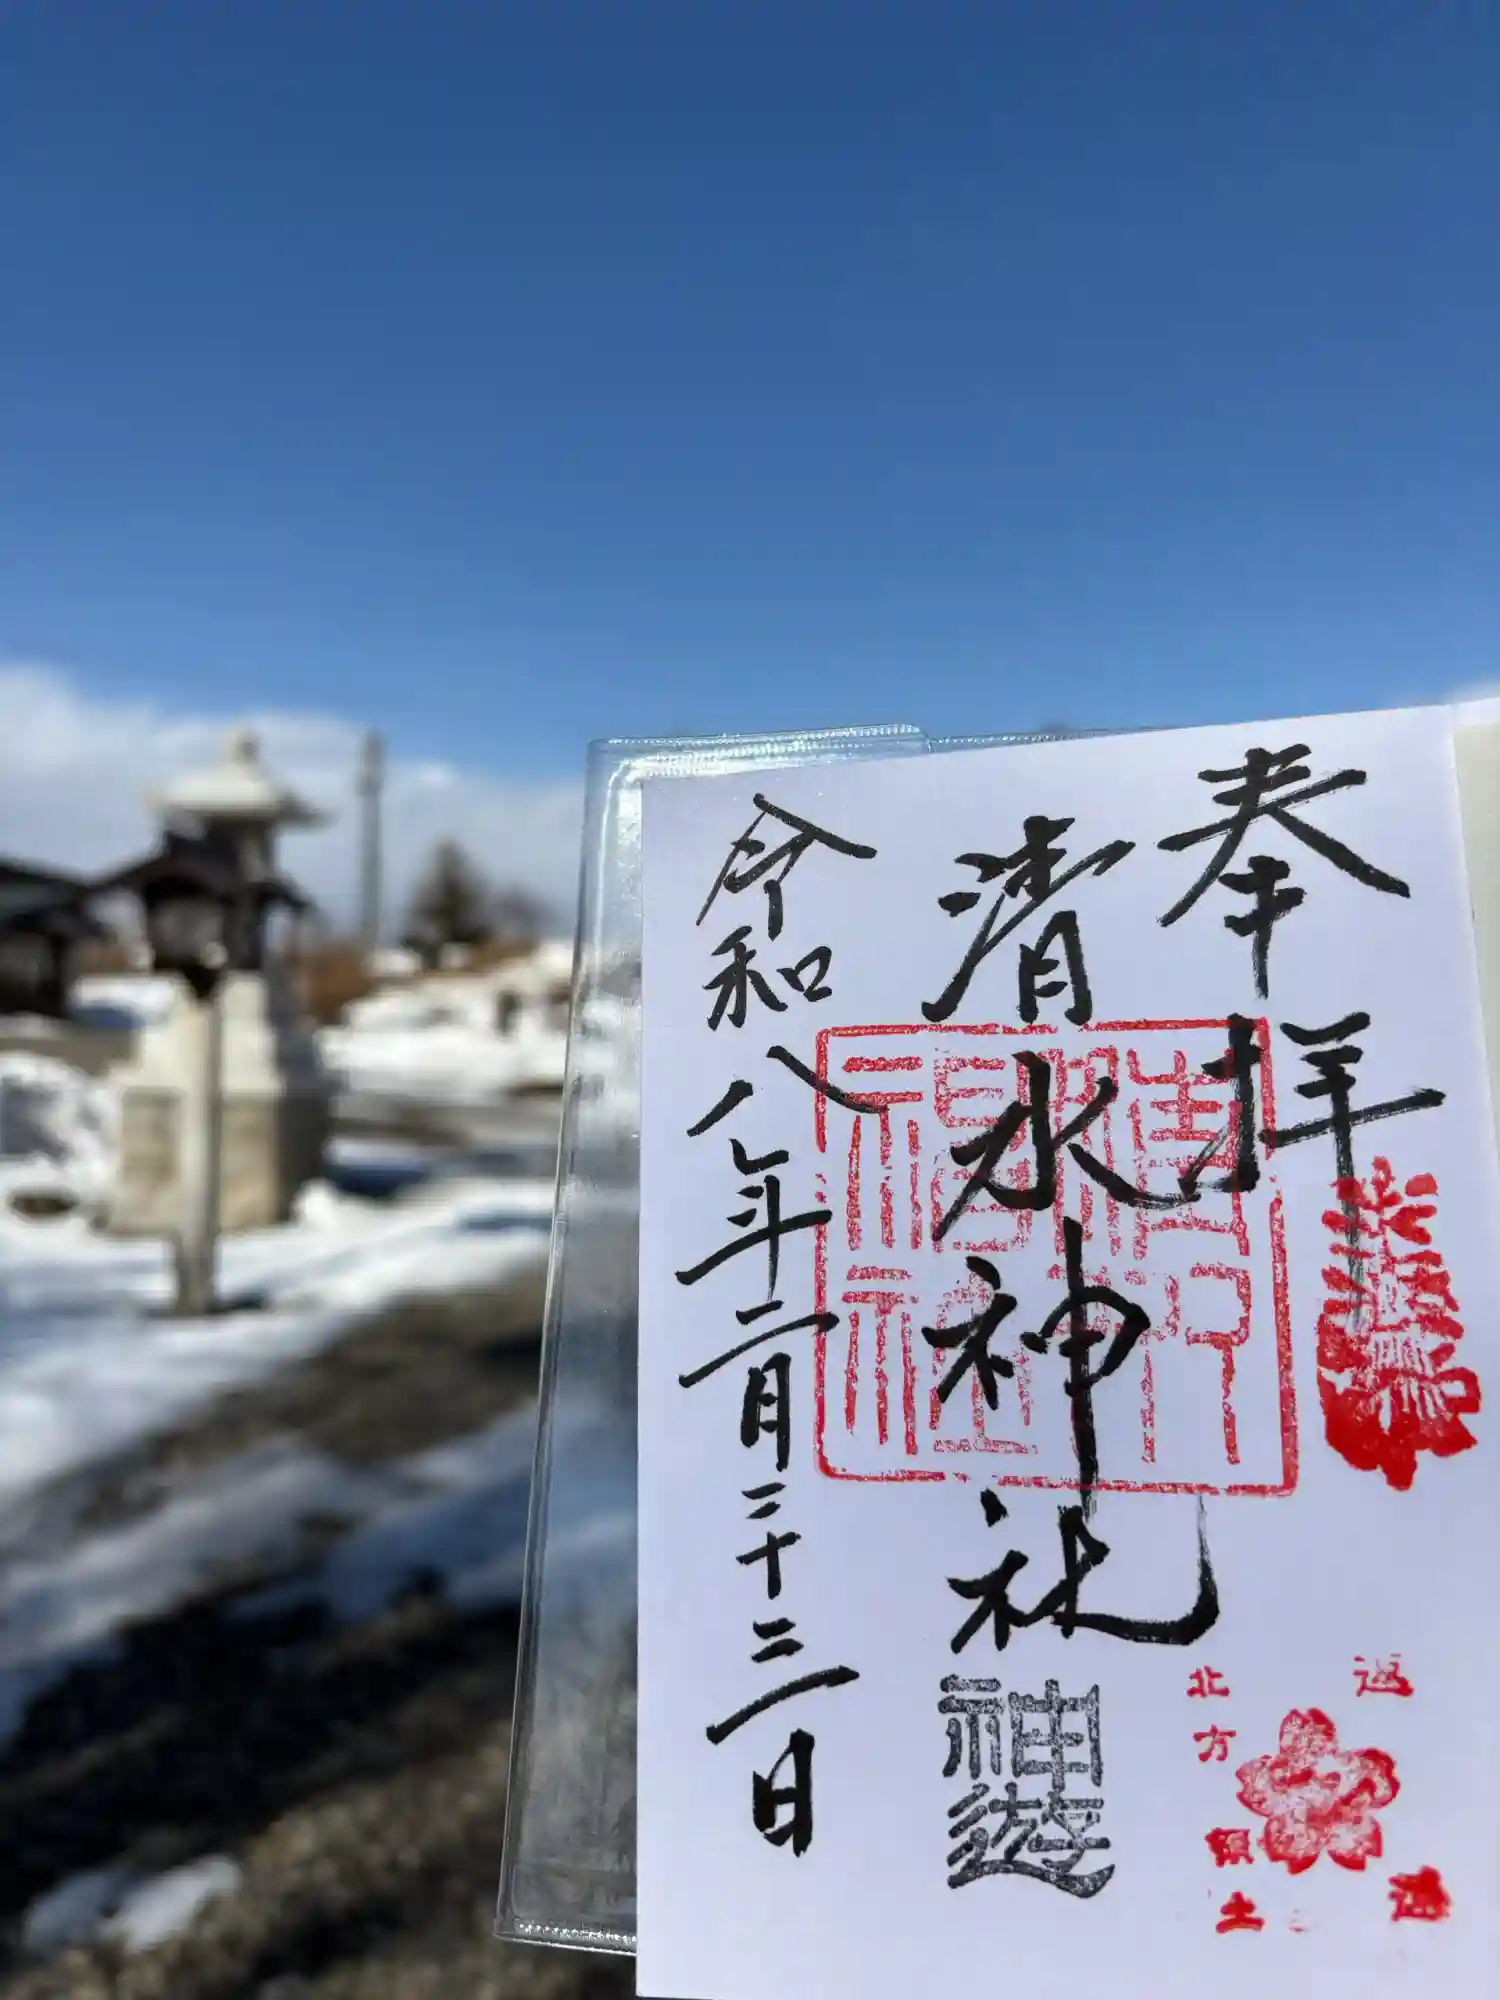 奉拝
清水神社
神遊
令和八年二月二十三日
返
北方領土